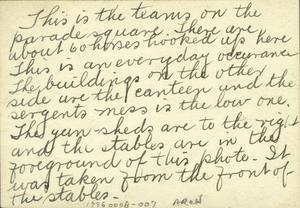 This is the teams on the
parade square. There are
about 60 horses hooked up here
This is an everyday occurance
The buildings on the other
side are the canteen and the
sergents mess is the low one.
The gun sheds are to the right
and the stables are in the
foreground of this photo. It
was taken from the front of
the stables.
1996000B-007 ARCH